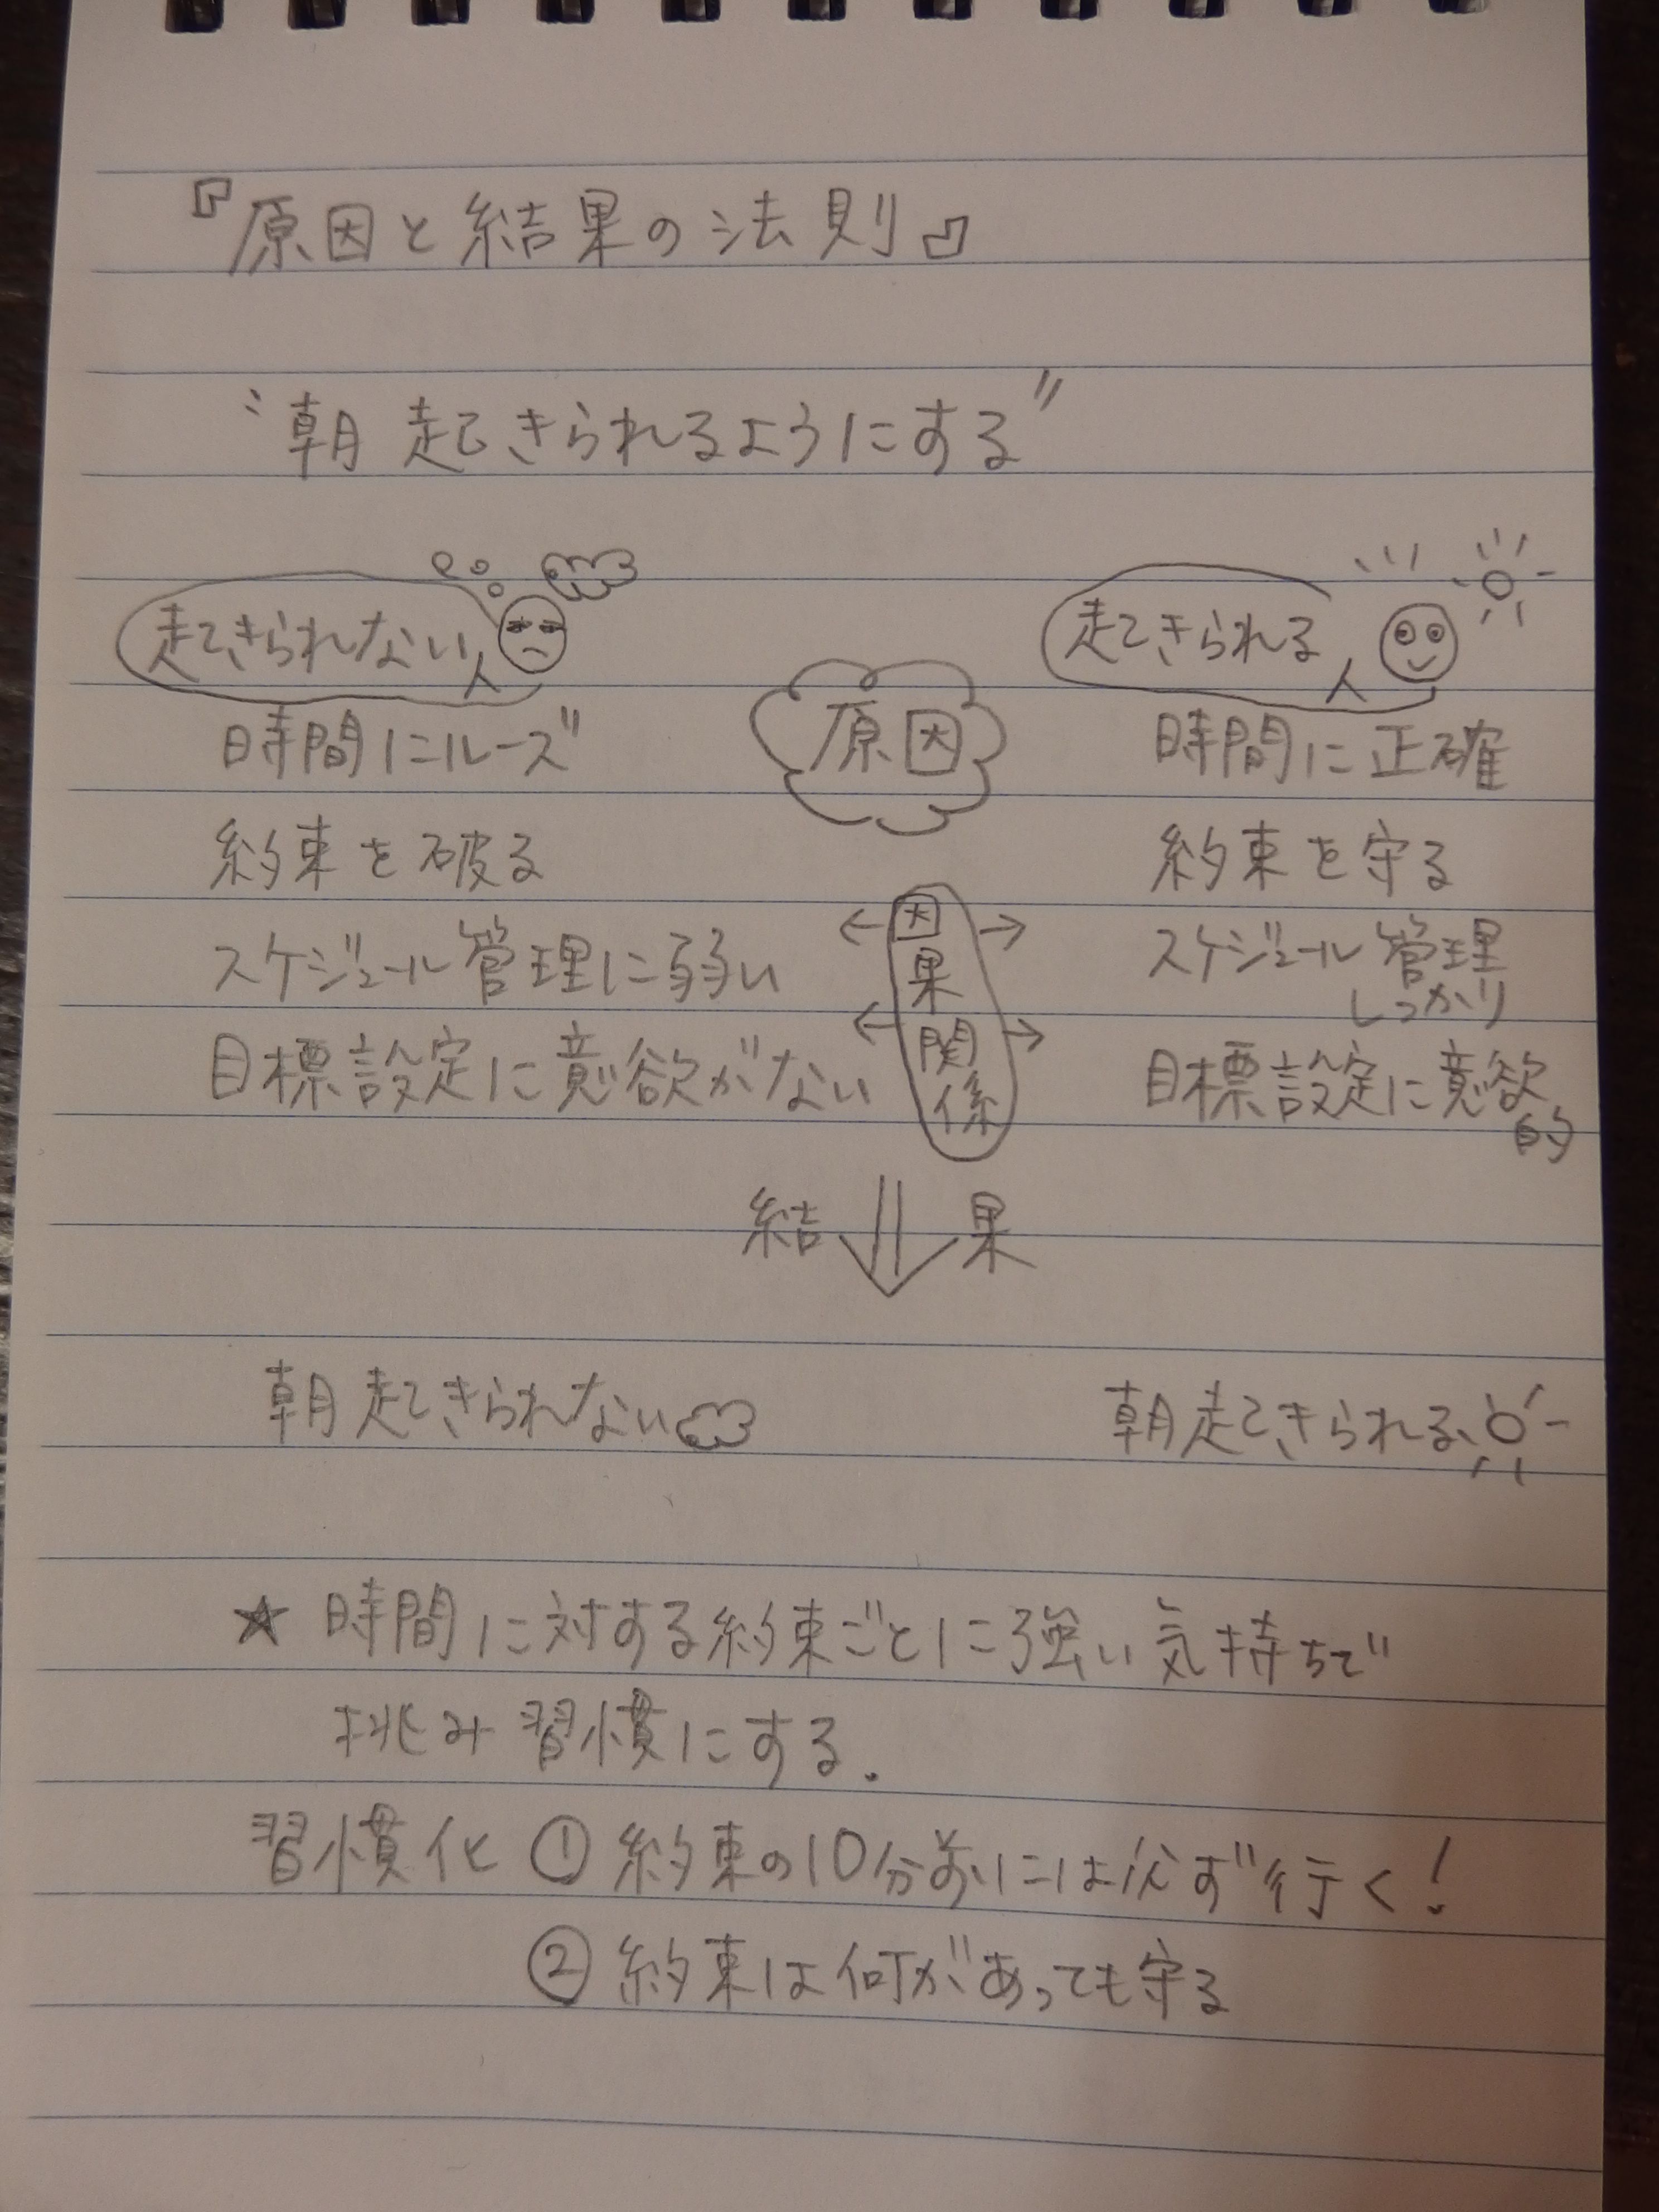 『原因と結果の法則』
"朝起きられるようにする"
起きられない人
起きられる人
原因
時間にルーズ
時間に正確
約束を破る
約束を守る
因果関係
スケジュール管理に弱い
スケジュール管理
しっかり
目標設定に意欲がない
目標設定に意欲
的
結果
朝起きられない
朝起きられる
★時間に対する約束ごとに強い気持ちで
挑み習慣にする.
習慣化 ① 約束の10分前には必ず行く!
② 約束は何があっても守る